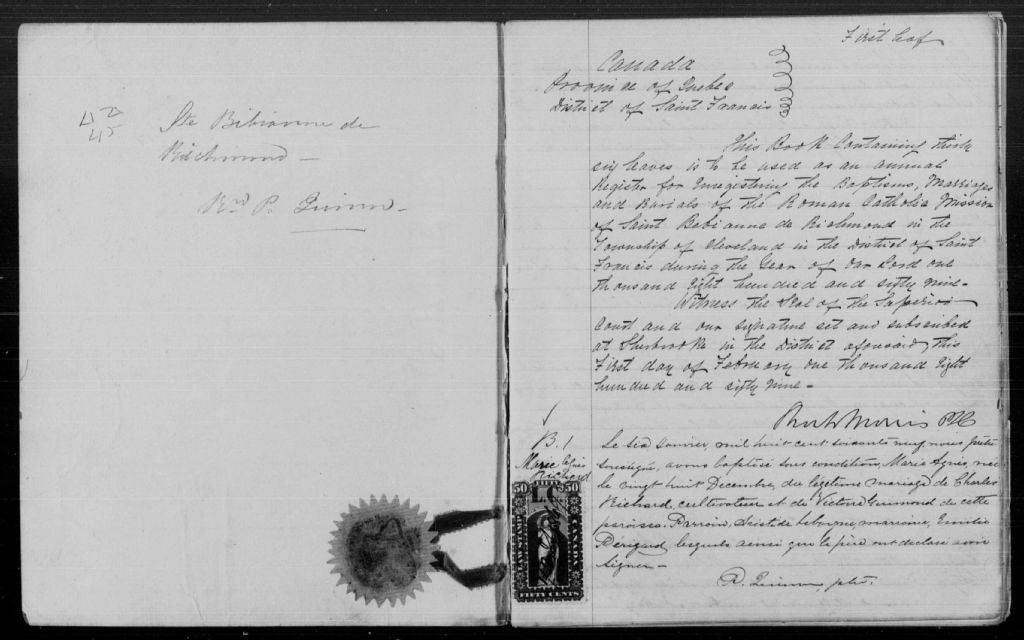 42
45
Ste Bibianne de
Richmond —
Revd P. Quinn —
First leaf
Canada
Province of Quebec
District of Saint Francis
This Book Containing thirty
six leaves is to be used as an annual
Register for Enregistering the Baptisms, Marriages
and Burials of the Roman Catholic Mission
of Saint Bebianne de Richmond in the
Township of Cleveland in the District of Saint
Francis during the Year of Our Lord one
thousand Eight hundred and sixty nine-
Witness the Seal of the Superior
Court and our signature set and subscribed
at Sherbrooke in the District aforesaid, this
First day of February one thousand Eight
hundred and sixty nine-
Morris
B. 1
Marie Agnès
Richard
Le six Janvier, mil huit cent soixante neuf nous prêtre
soussigné, avons baptisé sous condition, Marie Agnès, née
le vingt huit Decembre, du légitime mariage de Charles
Richard, cultivateur et de Victorie de cette
paroisse. Parrain, Aristide, marraine, Emilie
lesquels ainsi que le père ont declaré
signer —
P. Quinn, ptre.
50 LC 50
LAW STAMP
CANADA
FIFTY CENTS